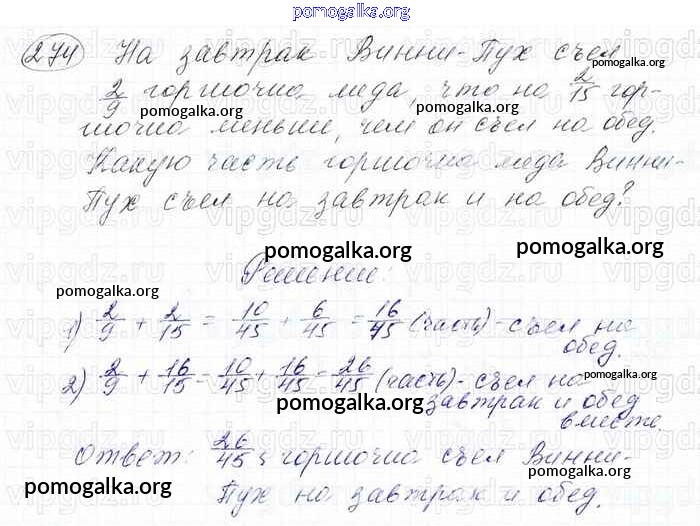 pomogalka.org
274 На завтрак Винни-Пух съел
pomogalka.org
2/9 горшочка меда, что на 2/15 гор-
pomogalka.org pomogalka.org
шочка меньше, чем он съел на обед.
Какую часть горшочка меда Винни-
Пух съел на завтрак и на обед?
pomogalka.org pomogalka.org
Решение:
pomogalka.org
1) 2/9 + 2/15 = 10/45 + 6/45 = 16/45 (часть) - съел на
обед.
pomogalka.org
2) 2/9 + 16/15 = 10/45 + 16/45 = 26/45 (часть) - съел на
pomogalka.org
завтрак и обед
вместе.
Ответ: 26/45 горшочка съел Винни-
pomogalka.org pomogalka.org
Пух на завтрак и обед.